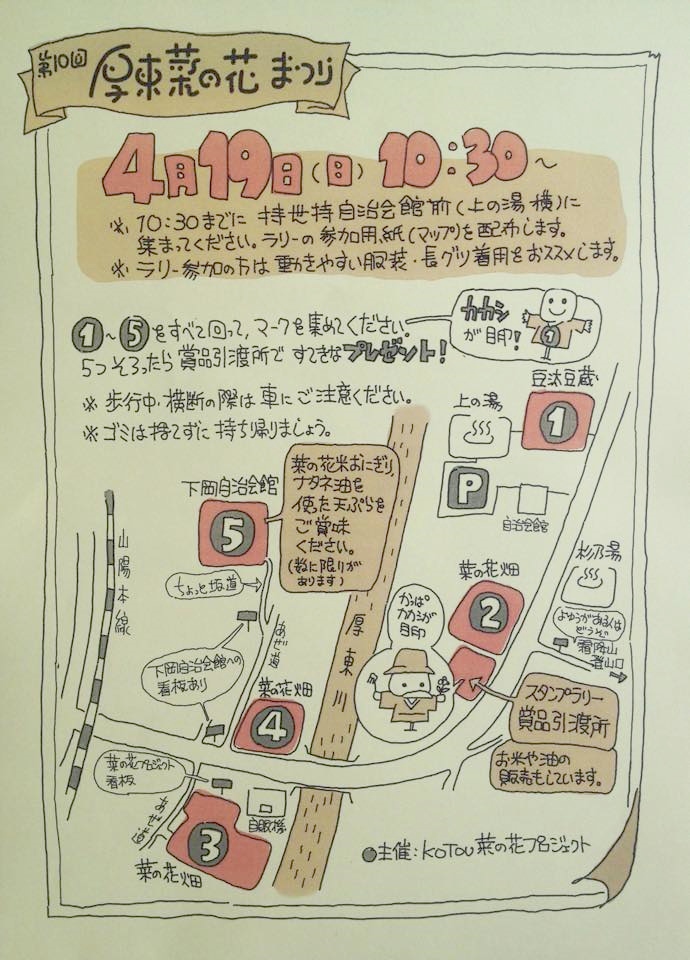 第10回
厚東菜の花まつり
4月19日(日)10:30~
※10:30までに 持世持自治会館前(上の湯横)に
集まってください。ラリーの参加用紙(マップ)を配布します。
※ラリー参加の方は動きやすい服装・長グツ着用をおススメします。
①~⑤をすべて回って,マークを集めてください。
5つそろったら賞品引渡所ですてきなプレゼント!
カカシ
が目印!
1
※歩行中・横断の際は車にご注意ください。
※ゴミは捨てずに持ち帰りましょう。
豆汰豆蔵
1
上の湯
P
自治会館
下岡自治会館
5
菜の花米おにぎり,
ナタネ油を
使った天ぷらを
ご賞味
ください。
(数に限りが
あります)
山陽本線
ちょっと坂道
あぜ道
下岡自治会館への
看板あり
厚東川
かっぱ
カカシが
目印
菜の花畑
2
杉乃湯
よゆうがある人は
どうぞ
霜降山
登山口
スタンプラリー
賞品引渡所
お米や油の
販売もしています。
菜の花畑
4
菜の花プロジェクト
看板
あぜ道
自販機
3
菜の花畑
●主催:KOTOU菜の花プロジェクト